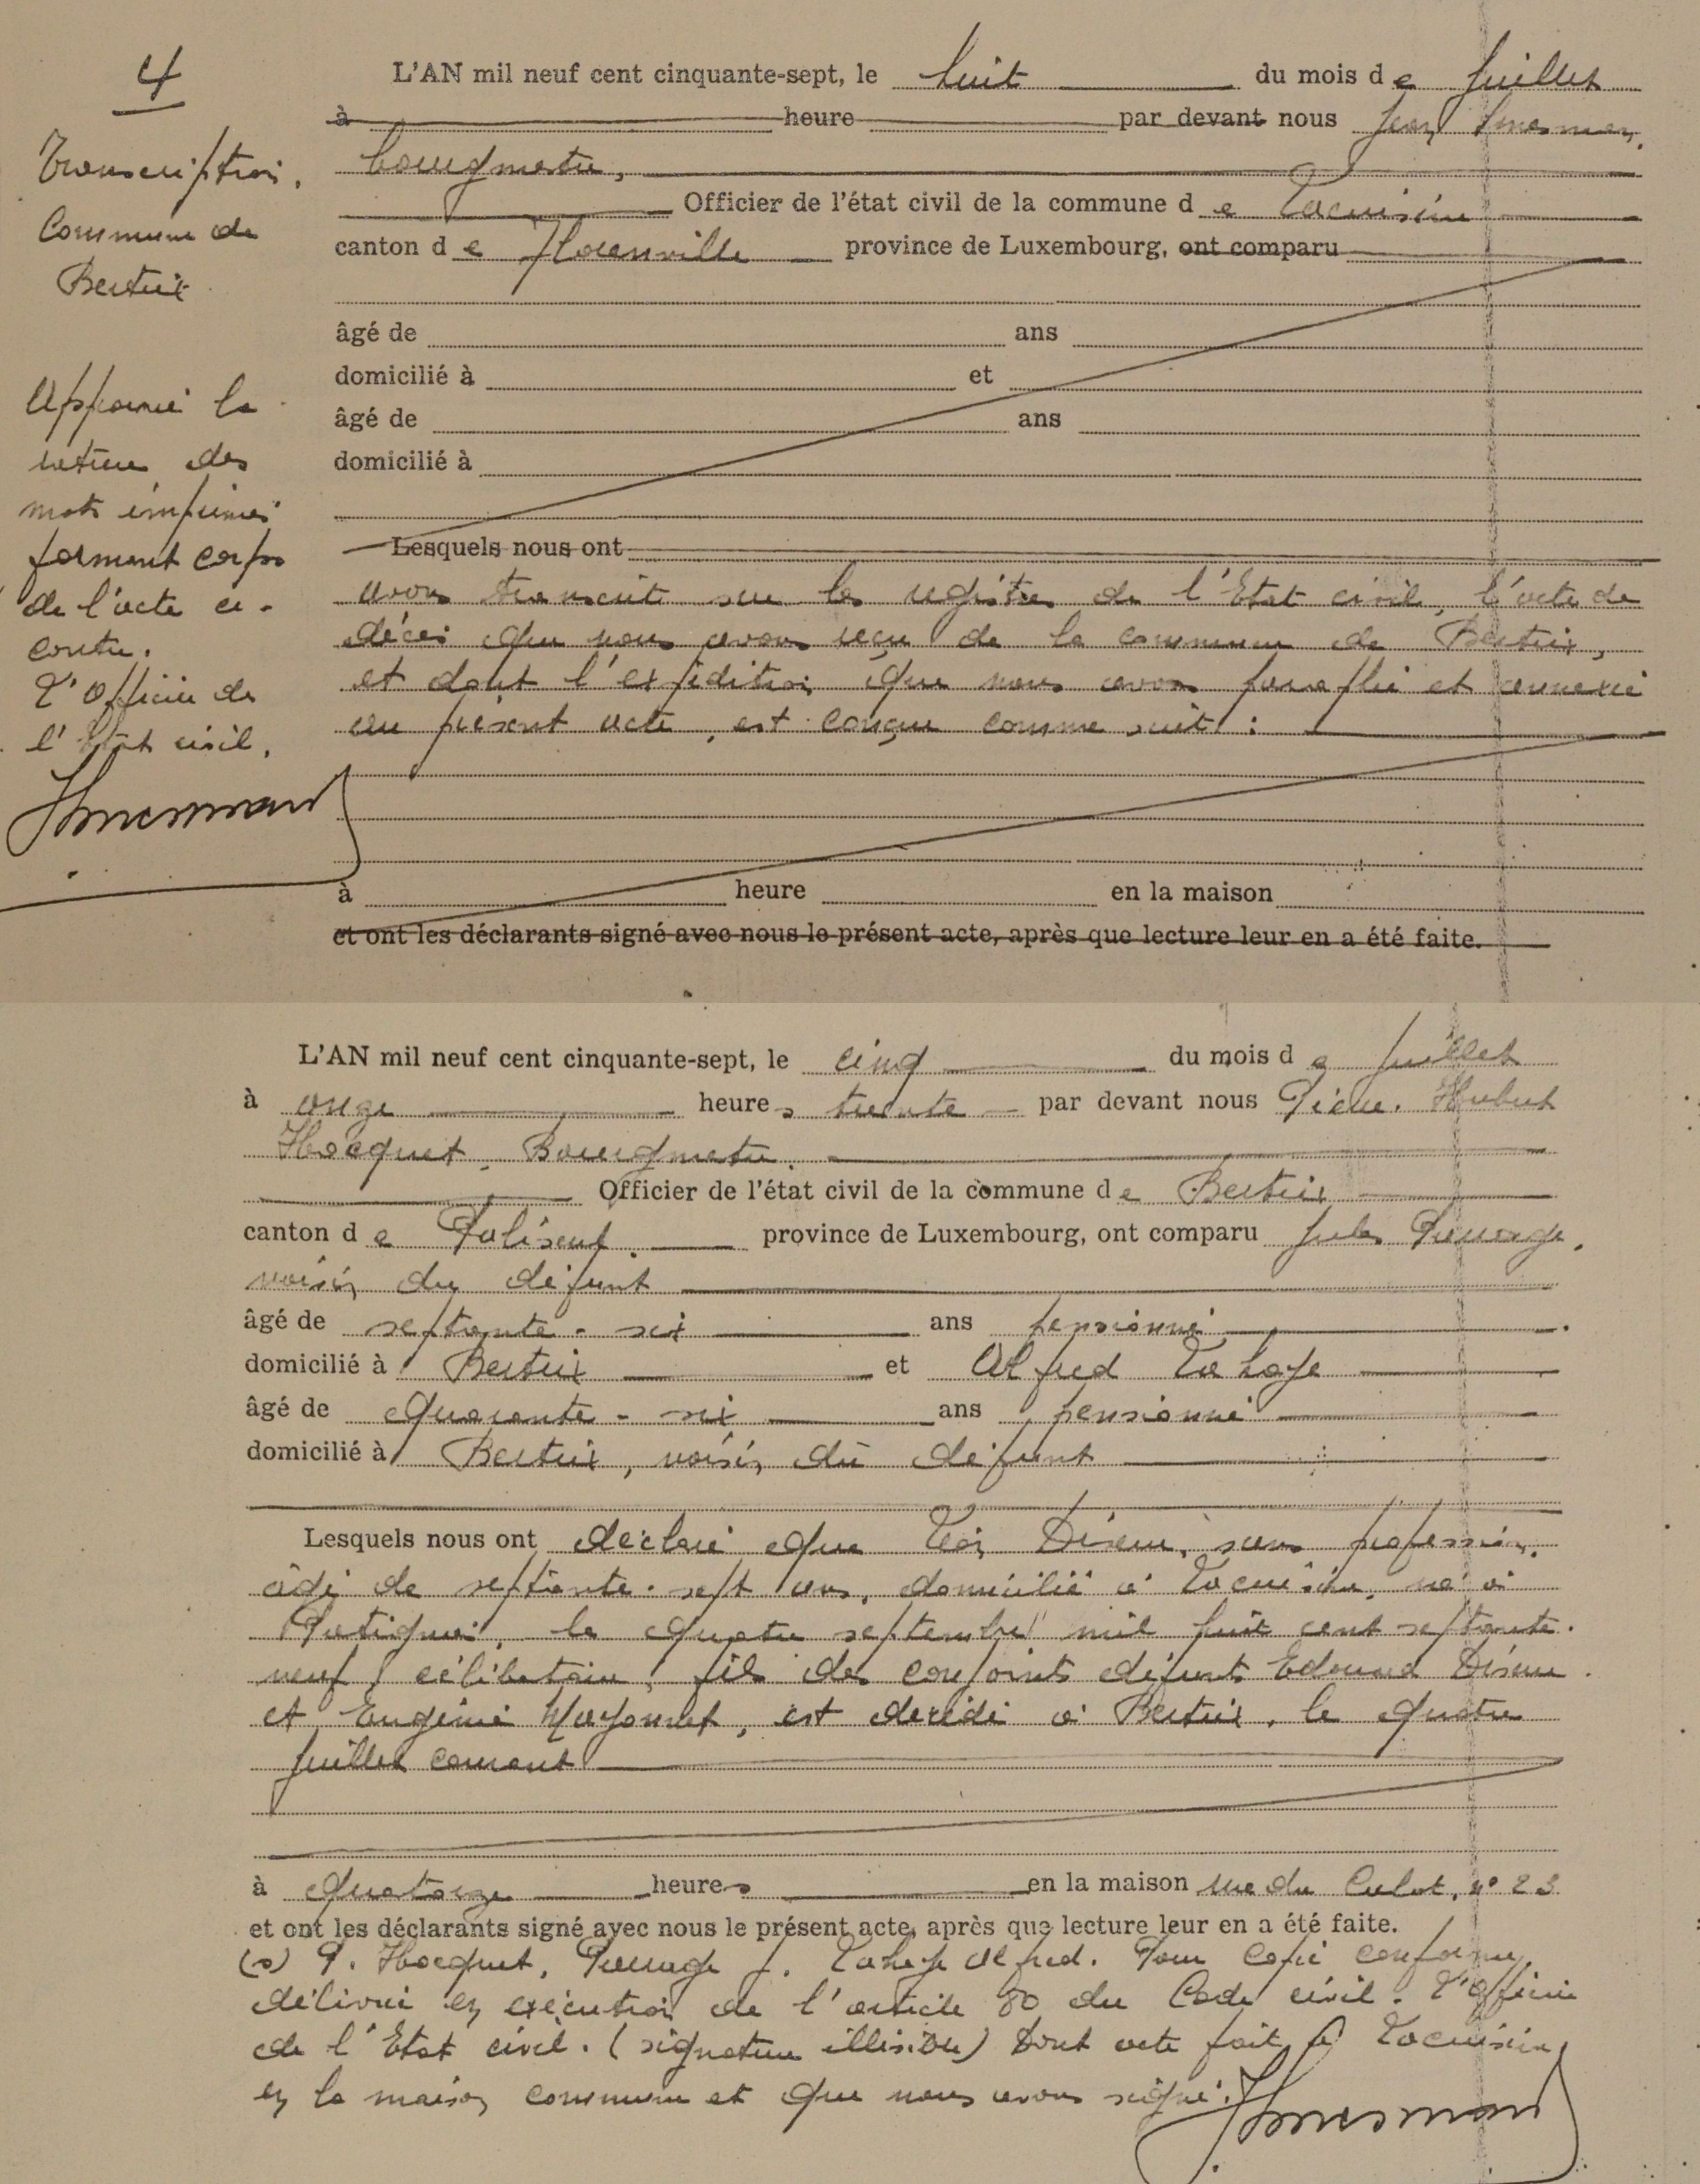 4
Transcription.
Commune de
Bertrix
Approuvé la
rature des
mots imprimés
formant corps
de l'acte ci-
contre.
L'Officier de
l'Etat civil.
L'AN mil neuf cent cinquante-sept, le huit du mois de Juillet
à heure par devant nous Jean
bourgmestre,
Officier de l'état civil de la commune de Lacuisine
canton de Florenville province de Luxembourg, ont comparu
âgé de ans
domicilié à et
âgé de ans
domicilié à
Lesquels nous ont
avons transcrit sur les registres de l'Etat civil, l'acte de
décès que nous avons reçu de la commune de Bertrix,
et dont l'expédition que nous avons paraphé et annexé
au présent acte, est conçue comme suit :
à heure en la maison
et ont les déclarants signé avec nous le présent acte, après que lecture leur en a été faite.
L'AN mil neuf cent cinquante-sept, le cinq du mois de Juillet
à onze heures trente par devant nous Pierre Hubert
Hocquet, Bourgmestre.
Officier de l'état civil de la commune de Bertrix
canton de Paliseul. province de Luxembourg, ont comparu Jules
voisin du défunt
âgé de septante-six ans pensionné
domicilié à Bertrix et Alfred Lahaye
âgé de quarante-six ans pensionné
domicilié à Bertrix, voisin du défunt
Lesquels nous ont déclaré que Léon sans profession,
âgé de septante-sept ans, domicilié à Lacuisine, né à
le quatre septembre mil huit cent septante-
neuf, célibataire, fils des conjoints défunts Edouard
et Eugénie est décédé à Bertrix, le quatre
juillet courant
à quatorze heures en la maison rue du Culot, n° 23
et ont les déclarants signé avec nous le présent acte, après que lecture leur en a été faite.
(s) P. Hocquet, J. Lahaye Alfred. Pour copie conforme
délivrée en exécution de l'article 80 du Code civil. L'officier
de l'Etat civil. (signature illisible) Dont acte fait à Lacuisine
en la maison commune et que nous avons signé.